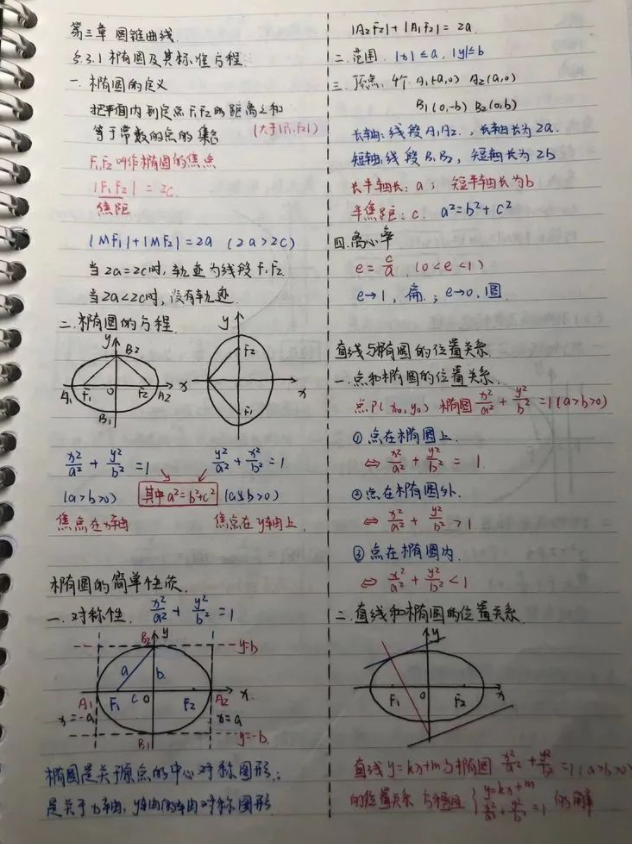 第三章 圆锥曲线
§3.1 椭圆及其标准方程
一. 椭圆的定义
把平面内到定点F₁F₂的距离之和
等于常数的点的集合 (大于|F₁F₂|)
F₁F₂叫作椭圆的焦点
|F₁F₂| = 2c
焦距
|MF₁|+|MF₂|=2a (2a>2c)
当2a=2c时,轨迹为线段F₁F₂
当2a<2c时,没有轨迹
二. 椭圆的方程
y B₂ A₁ F₁ O F₂ A₂ x B₁
y F₂ x F₁
x²/a² + y²/b² = 1 y²/a² + x²/b² = 1
(a>b>0) 其中a²=b²+c² (a>b>0)
焦点在x轴 焦点在y轴上
椭圆的简单性质
一. 对称性. x²/a² + y²/b² = 1
B₂ y y=b
a b
A₁ F₁ C O F₂ A₂ x
x=-a x=a
B₁ y=-b
椭圆是关于原点的中心对称图形;
是关于x轴,y轴的轴对称图形
|A₂F₂|+|A₁F₂|= 2a
二. 范围. |x|≤a |y|≤b
三. 顶点: 4个 A₁(-a,0) A₂(a,0)
B₁(0,-b) B₂(0,b)
长轴:线段A₁A₂. ,长轴长为2a.
短轴:线段B₁B₂, 短轴长为2b
长半轴长:a; 短半轴长为b
半焦距:c. a²=b²+c²
四.离心率
e = c/a (0<e<1)
e→1,扁.; e→0.圆
直线与椭圆的位置关系
一.点和椭圆的位置关系.
点P(x₀,y₀) 椭圆 x²/a² + y²/b² =1(a>b>0)
①点在椭圆上.
⇔ x²/a² + y²/b² = 1
②点在椭圆外.
⇔ x²/a² + y²/b² >1
③点在椭圆内.
⇔ x²/a² + y²/b² <1
二.直线和椭圆的位置关系.
y F₁ O F₂ x
直线y=kx+m与椭圆 x²/a² + y²/b² =1(a>b>0)
的位置关系 方程组 { y=kx+m x²/a² + y²/b² =1 的解